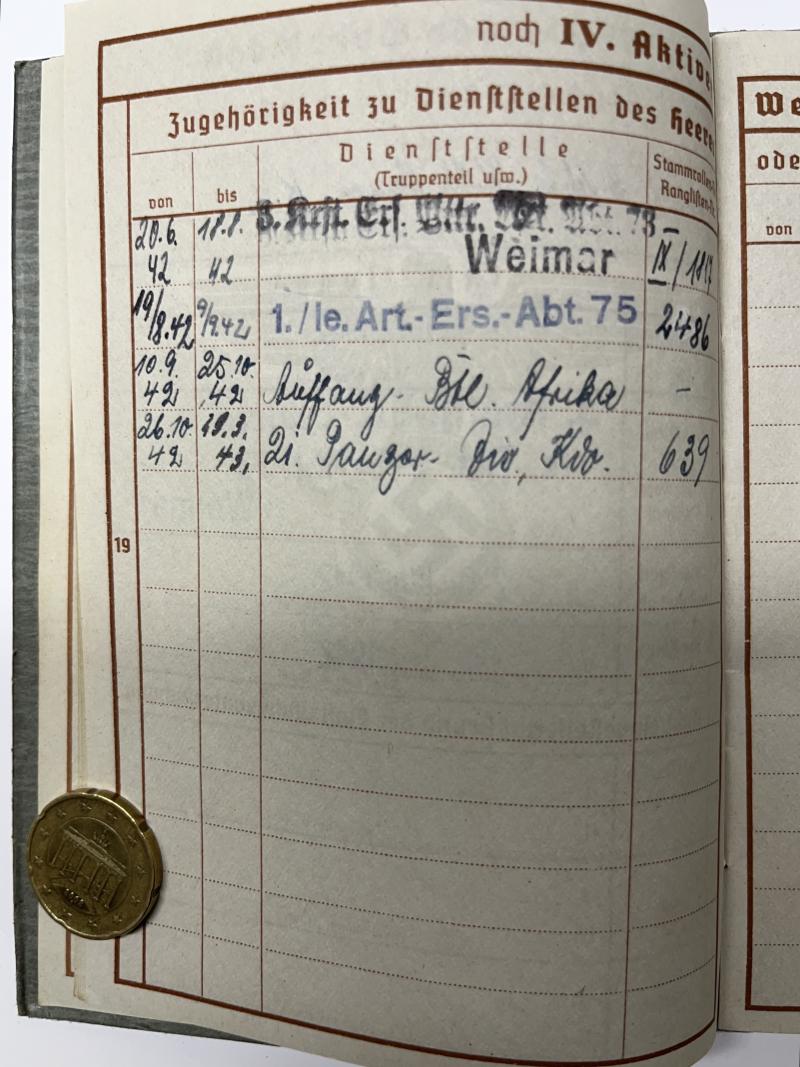 noch IV. Aktive
Zugehörigkeit zu Dienststellen des Heere
von bis Dienststelle (Truppenteil usw.) Stammrollen- Ranglisten-
20.6. 42 18.8. 42 Ers. 73 Weimar IX/
19/8.42 9/9.42 1./le. Art.-Ers.-Abt. 75 2486
10.9. 42 25.10. 42 Auffang- Btl. Afrika -
26.10. 42 19.3. 43. 21. Panzer- Div. Kdo. 639
19
We
ode
von